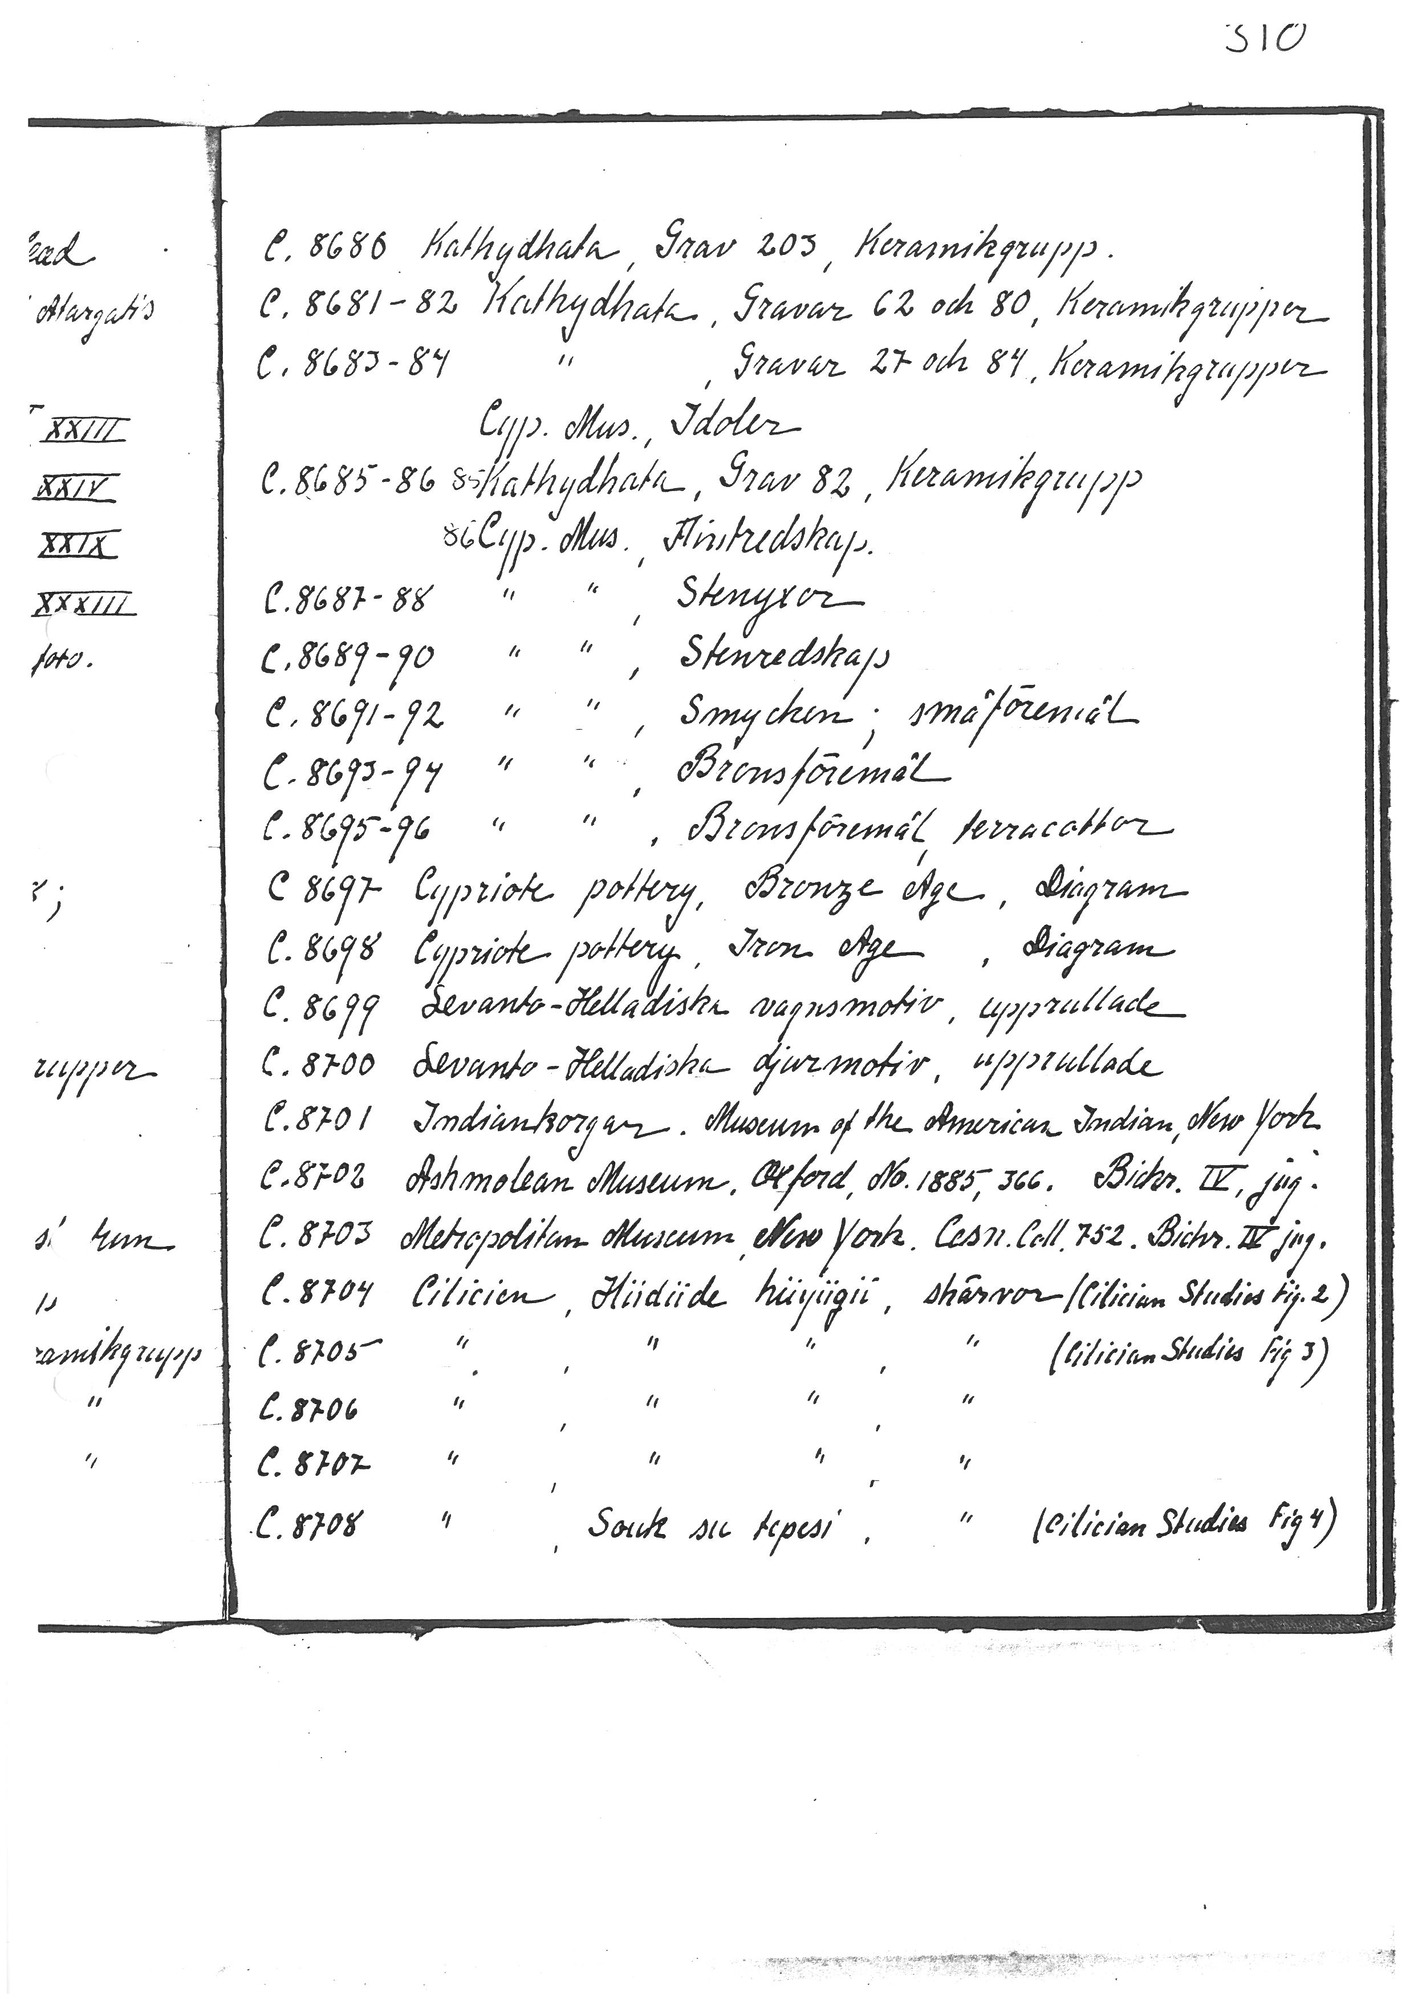 310
ead
Atargatis
XXIII
XXIV
XXIX
XXXIII
foto.
;
rupper
s' rum
is
ramikgrupp
"
"
C. 8680 Kathydhata, Grav 203, Keramikgrupp.
C. 8681-82 Kathydhata, Gravar 62 och 80, Keramikgrupper
C. 8683-84 " , Gravar 27 och 84, Keramikgrupper
Cyp. Mus., Idoler
C. 8685-86 85 Kathydhata, Grav 82, Keramikgrupp
86 Cyp. Mus., Flintredskap.
C. 8687-88 " " , Stenyxor
C. 8689-90 " " , Stenredskap
C. 8691-92 " " , Smycken; småföremål
C. 8693-94 " " , Bronsföremål
C. 8695-96 " " , Bronsföremål, terracottor
C 8697 Cypriote pottery, Bronze Age, Diagram
C. 8698 Cypriote pottery, Iron Age, Diagram
C. 8699 Levanto-Helladiska vagnsmotiv, upprullade
C. 8700 Levanto-Helladiska djurmotiv, upprullade
C. 8701 Indiankorgar. Museum of the American Indian, New York
C. 8702 Ashmolean Museum, Oxford, No. 1885, 366. Bichr. IV, jug.
C. 8703 Metropolitan Museum, New York. Cesn. Coll. 752. Bichr. IV jug.
C. 8704 Cilicien, Hüdüde hüyügü, skärvor (Cilician Studies Fig. 2)
C. 8705 " , " " , " (Cilician Studies Fig 3)
C. 8706 " , " " , "
C. 8707 " , " " , "
C. 8708 " , Souk su tepesi, " (Cilician Studies Fig 4)